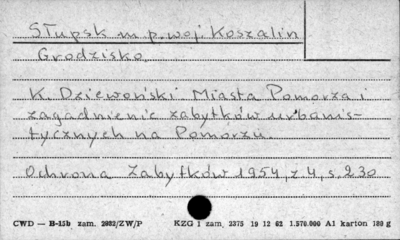 Słupsk m. p. woj. Koszalin
Grodzisko.
K. Dziewoński Miasta Pomorza i
zagadnienie zabytków urbanis-
tycznych na Pomorzu.
Ochrona Zabytków 1954, z 4, s. 230
CWD — B-15b zam. 2082/ZW/P KZG 1 zam. 2375 19 12 62 1.570.000 A1 karton 180 g